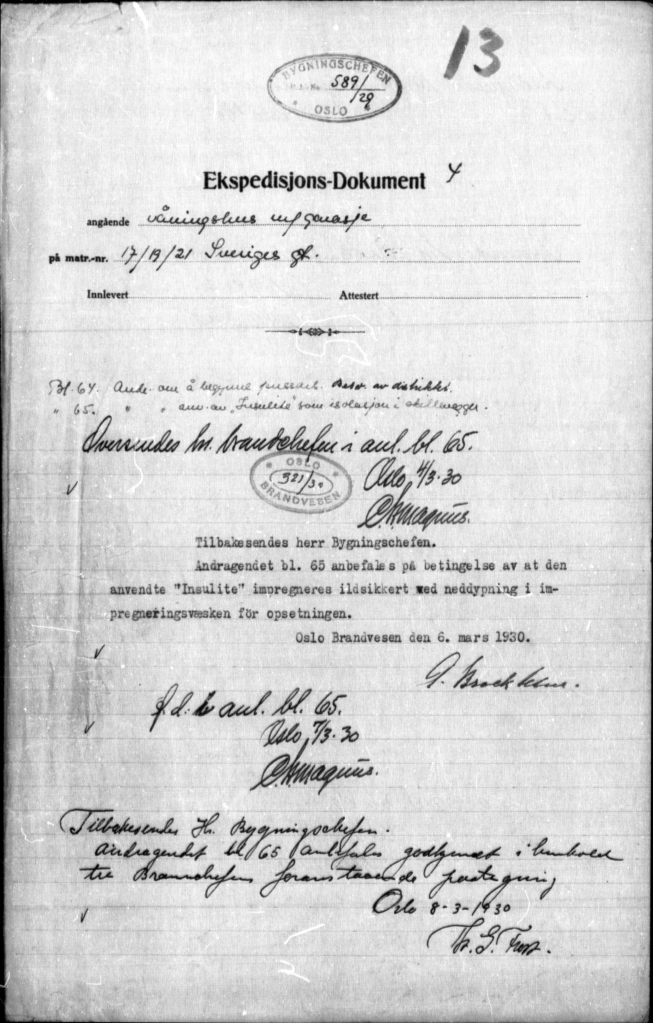 13
BYGNINGSCHEFEN
589/29
OSLO
Ekspedisjons-Dokument 4
angående våningshus m/garasje
på matr.-nr. 17/19/21 Sveriges gt.
Innlevert Attestert
Bl. 64. Andr. om å begynne pussarb. Besv. av distrikt.
" 65. " " anv. av "Insulite" som isolasjon i skillevegger.
Oversendes hr. brandchefen i anl. bl. 65.
Oslo 4/3-30
OSLO
921/30
BRANDVESEN
Tilbakesendes herr Bygningschefen.
Andragendet bl. 65 anbefales på betingelse av at den
anvendte "Insulite" impregneres ildsikkert ved neddypning i im-
pregneringsvæsken för opsetningen.
Oslo Brandvesen den 6. mars 1930.
f.d. i anl. bl. 65.
Oslo 7/3-30
Tilbakesendes Hr. Bygningschefen.
Andragendet bl 65 anbefales godkjendt i henhold
til Brannchefens foranstaaende paategning
Oslo 8-3-1930